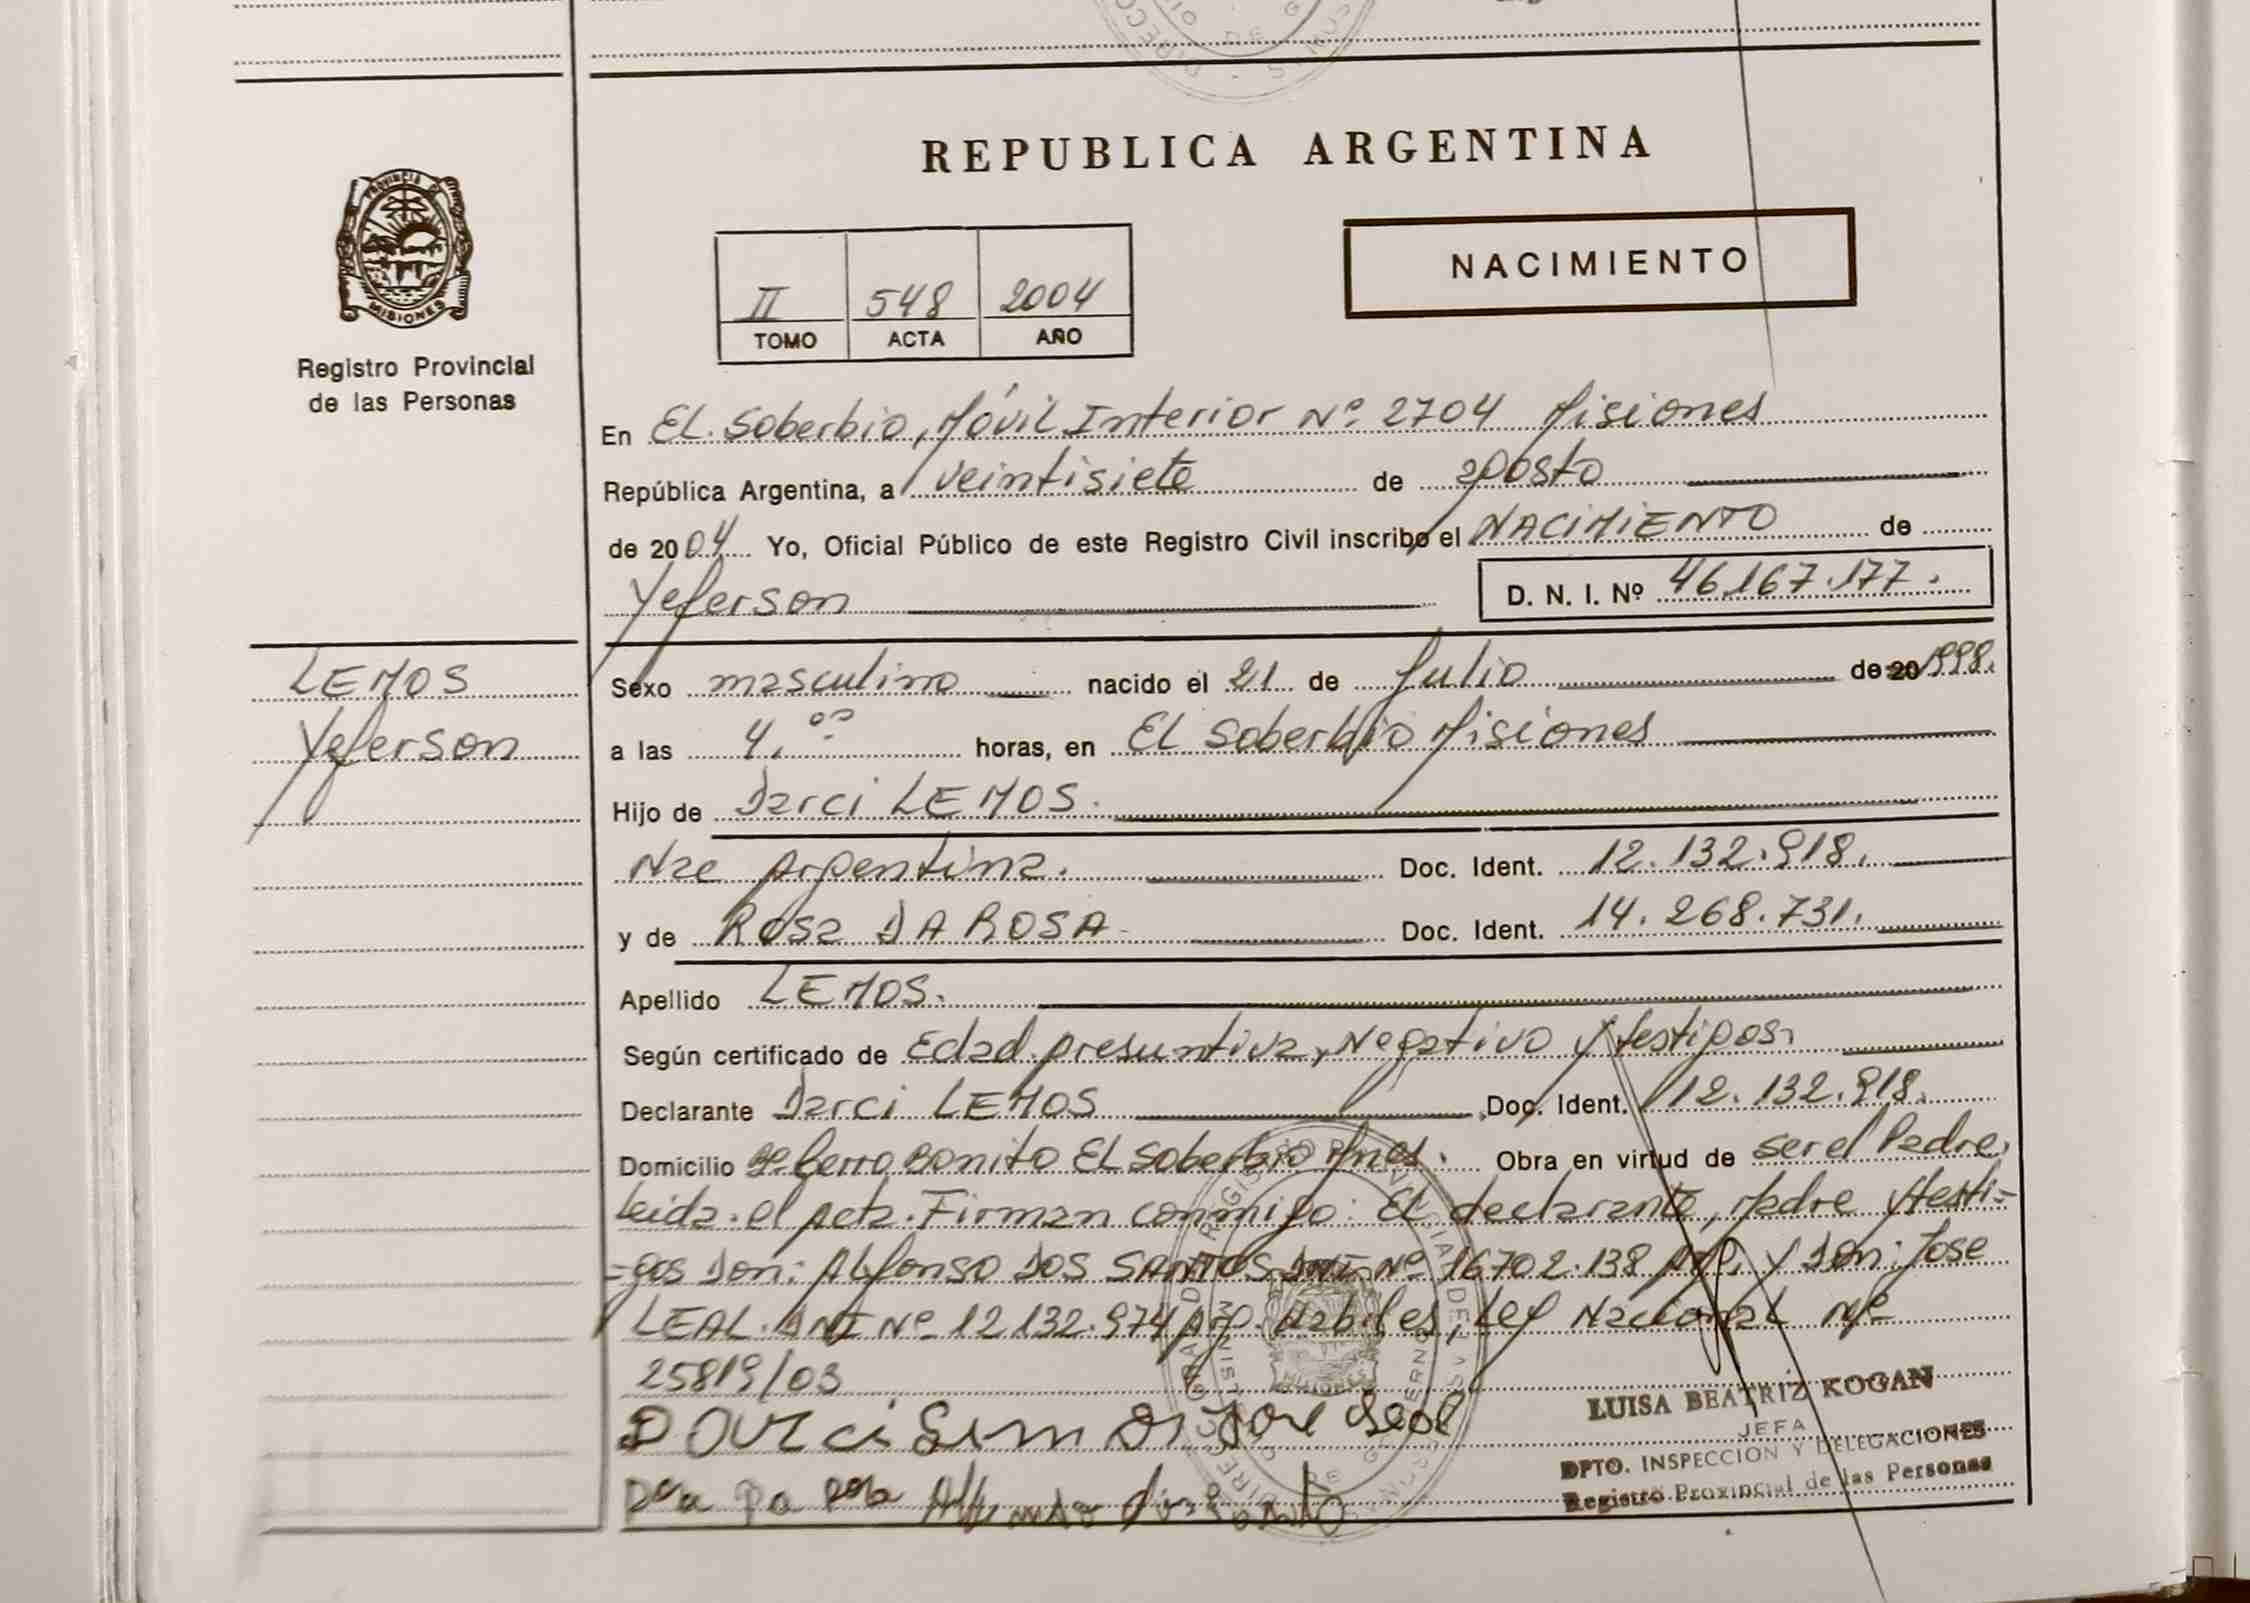 REPUBLICA ARGENTINA
PROVINCIA D
MISIONES
Registro Provincial
de las Personas
NACIMIENTO
II 548 2004
TOMO ACTA AÑO
En EL Soberbio, Móvil Interior Nº 2704 Misiones
República Argentina, a veintisiete de agosto
de 2004 Yo, Oficial Público de este Registro Civil inscribo el NACIMIENTO de
Yeferson D. N. I. Nº 46.167.177.
LEMOS
Yeferson
Sexo masculino nacido el 21 de Julio de 20 1998.
a las 4.00 horas, en EL Soberbio Misiones
Hijo de Darci LEMOS.
Nac Argentina. Doc. Ident. 12.132.918.
y de Rosa DA ROSA Doc. Ident. 14.268.731.
Apellido LEMOS.
Según certificado de Edad presuntiva, Negativo y testigos.
Declarante Darci LEMOS Doc. Ident. 12.132.918.
Domicilio Cerro Bonito EL Soberbio Mnes. Obra en virtud de ser el Padre.
Leida el acta. Firman conmigo: El declarante, Madre y testi=
=gos Don: Alfonso DOS SANTOS DNI Nº 16702.138 Arg. y Don: Jose
LEAL. DNI Nº 12.132.974 Arg. Habiles, Ley Nacional Nº
25819/03
Jose Leal
LUISA BEATRIZ KOGAN
JEFA
DPTO. INSPECCION Y DELEGACIONES
Registro Provincial de las Personas